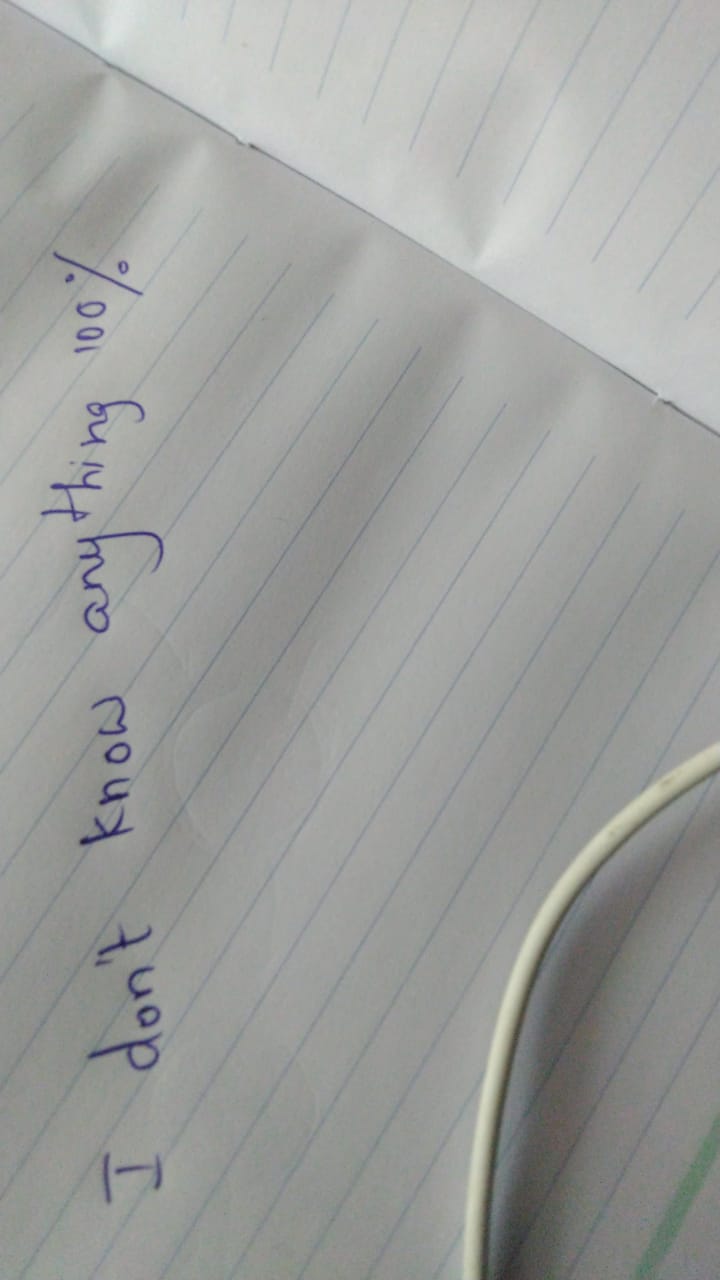 I don't know anything 100%